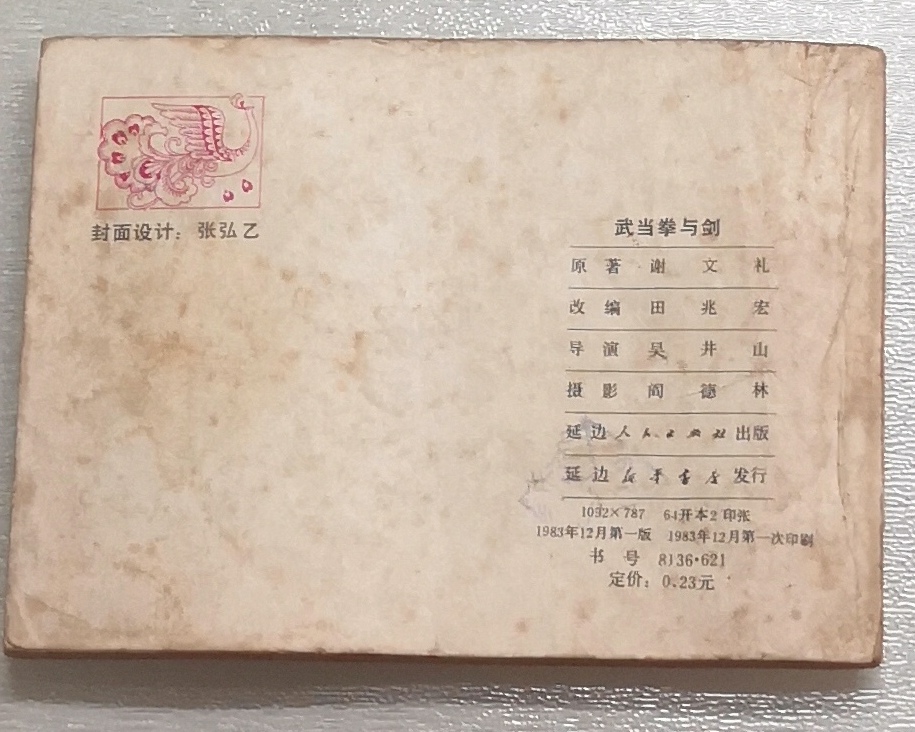 封面设计：张弘乙
武当拳与剑
原著 谢文礼
改编 田兆宏
导演 吴井山
摄影 阎德林
延边人民出版社出版
延边新华书店发行
1092×787 64开本2印张
1983年12月第一版 1983年12月第一次印刷
书号 8136·621
定价：0.23元